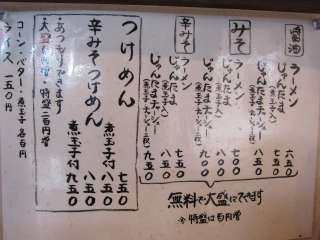 醤油
ラーメン 六五〇
じゃんたま (煮玉子入) 七五〇
じゃんたまチャーシュー 八五〇
みそ
ラーメン 七五〇
じゃんたま (煮玉子入) 八五〇
じゃんたまチャーシュー 九五〇
辛みそ
ラーメン 七五〇
じゃんたま (煮玉子入) 八五〇
じゃんたまチャーシュー 九五〇
無料で大盛にできます
※特盛は百円増
つけめん 七五〇
煮玉子付 八五〇
辛みそつけめん 八五〇
煮玉子付 九五〇
あつもりできます
・大盛百円増・特盛二百円増
コーン・バター・煮玉子 各百円
ライス 一五〇円